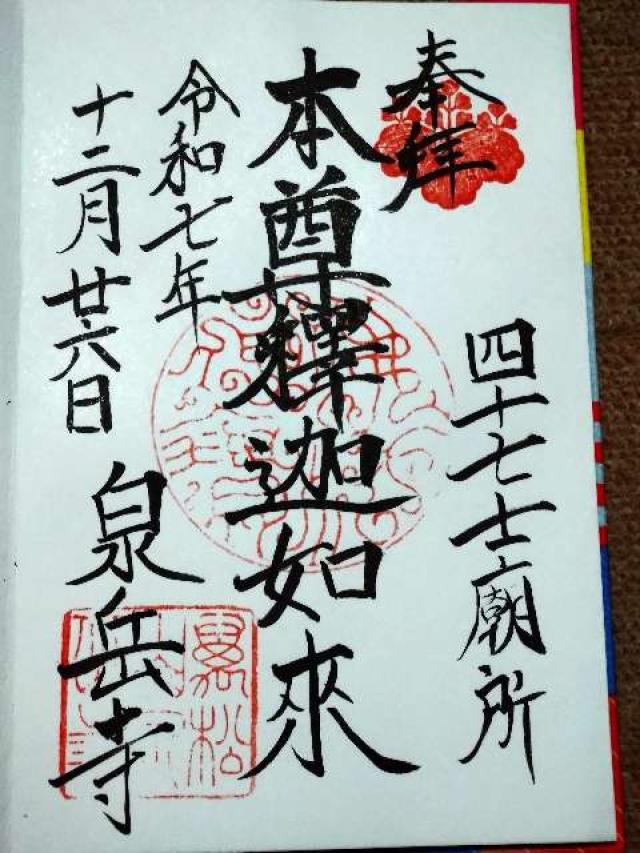 奉拝
四十七士廟所
本尊釋迦如來
令和七年
十二月廿六日
泉岳寺